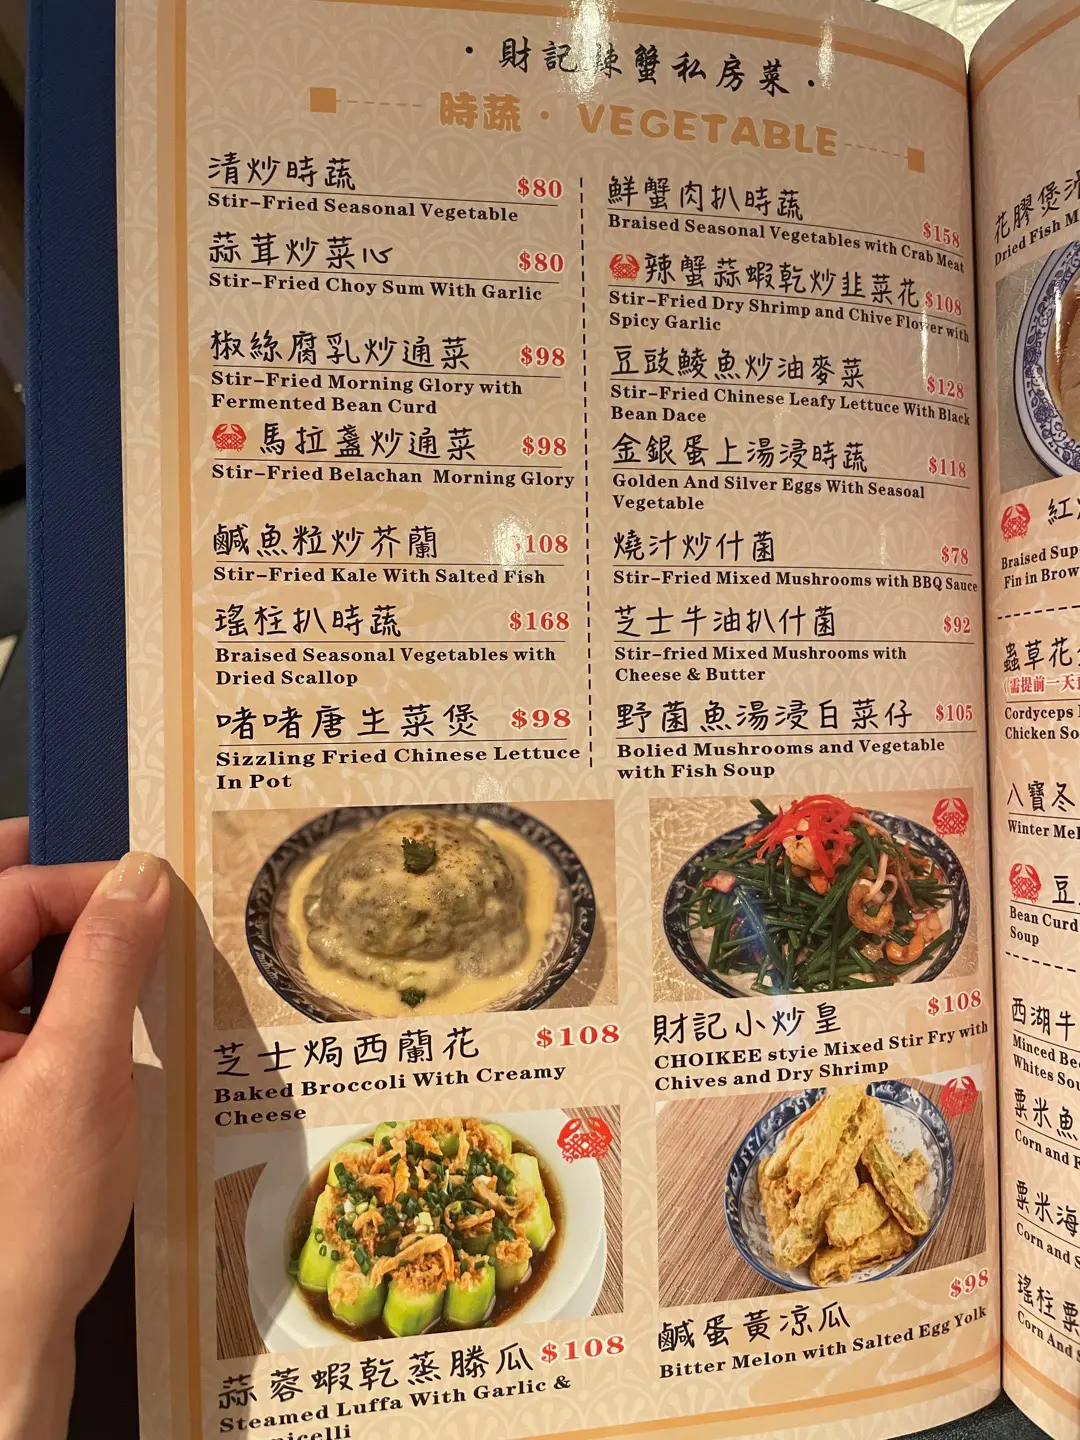 · 財記辣蟹私房菜 ·
時蔬 · VEGETABLE
清炒時蔬 $80
Stir-Fried Seasonal Vegetable
蒜茸炒菜心 $80
Stir-Fried Choy Sum With Garlic
椒絲腐乳炒通菜 $98
Stir-Fried Morning Glory with
Fermented Bean Curd
馬拉盞炒通菜 $98
Stir-Fried Belachan Morning Glory
鹹魚粒炒芥蘭 $108
Stir-Fried Kale With Salted Fish
瑤柱扒時蔬 $168
Braised Seasonal Vegetables with
Dried Scallop
啫啫唐生菜煲 $98
Sizzling Fried Chinese Lettuce
In Pot
鮮蟹肉扒時蔬 $158
Braised Seasonal Vegetables with Crab Meat
辣蟹蒜蝦乾炒韭菜花 $108
Stir-Fried Dry Shrimp and Chive Flower with
Spicy Garlic
豆豉鯪魚炒油麥菜 $128
Stir-Fried Chinese Leafy Lettuce With Black
Bean Dace
金銀蛋上湯浸時蔬 $118
Golden And Silver Eggs With Seasoal
Vegetable
燒汁炒什菌 $78
Stir-Fried Mixed Mushrooms with BBQ Sauce
芝士牛油扒什菌 $92
Stir-fried Mixed Mushrooms with
Cheese & Butter
野菌魚湯浸白菜仔 $105
Bolied Mushrooms and Vegetable
with Fish Soup
芝士焗西蘭花 $108
Baked Broccoli With Creamy
Cheese
財記小炒皇 $108
CHOIKEE styie Mixed Stir Fry with
Chives and Dry Shrimp
蒜蓉蝦乾蒸勝瓜 $108
Steamed Luffa With Garlic &
鹹蛋黃涼瓜 $98
Bitter Melon with Salted Egg Yolk
花膠煲
Dried Fish
紅
Braised
Fin in Brow
蟲草花
(需提前一天
Cordyceps
Chicken
八寶冬
Winter
豆
Bean Curd
Soup
西湖牛
Minced
Whites
粟米魚
Corn and
粟米海
Corn and
瑤柱粟
Corn And